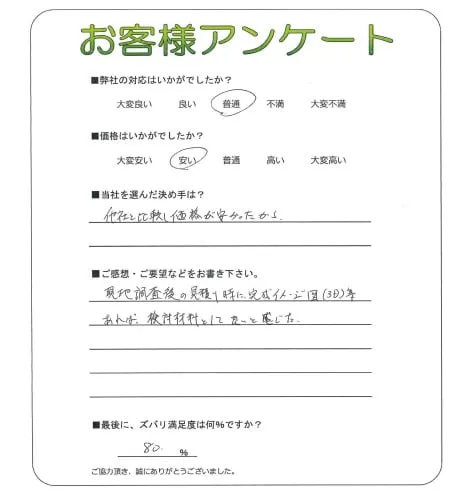 お客様アンケート
■弊社の対応はいかがでしたか？
大変良い 良い 普通 不満 大変不満
■価格はいかがでしたか？
大変安い 安い 普通 高い 大変高い
■当社を選んだ決め手は？
他社と比較し価格が安かったから。
■ご感想・ご要望などをお書き下さい。
現地調査後の見積り時に完成イメージ図(3D)等
あれば、検討材料として と感じた。
■最後に、ズバリ満足度は何％ですか？
80. ％
ご協力頂き、誠にありがとうございました。